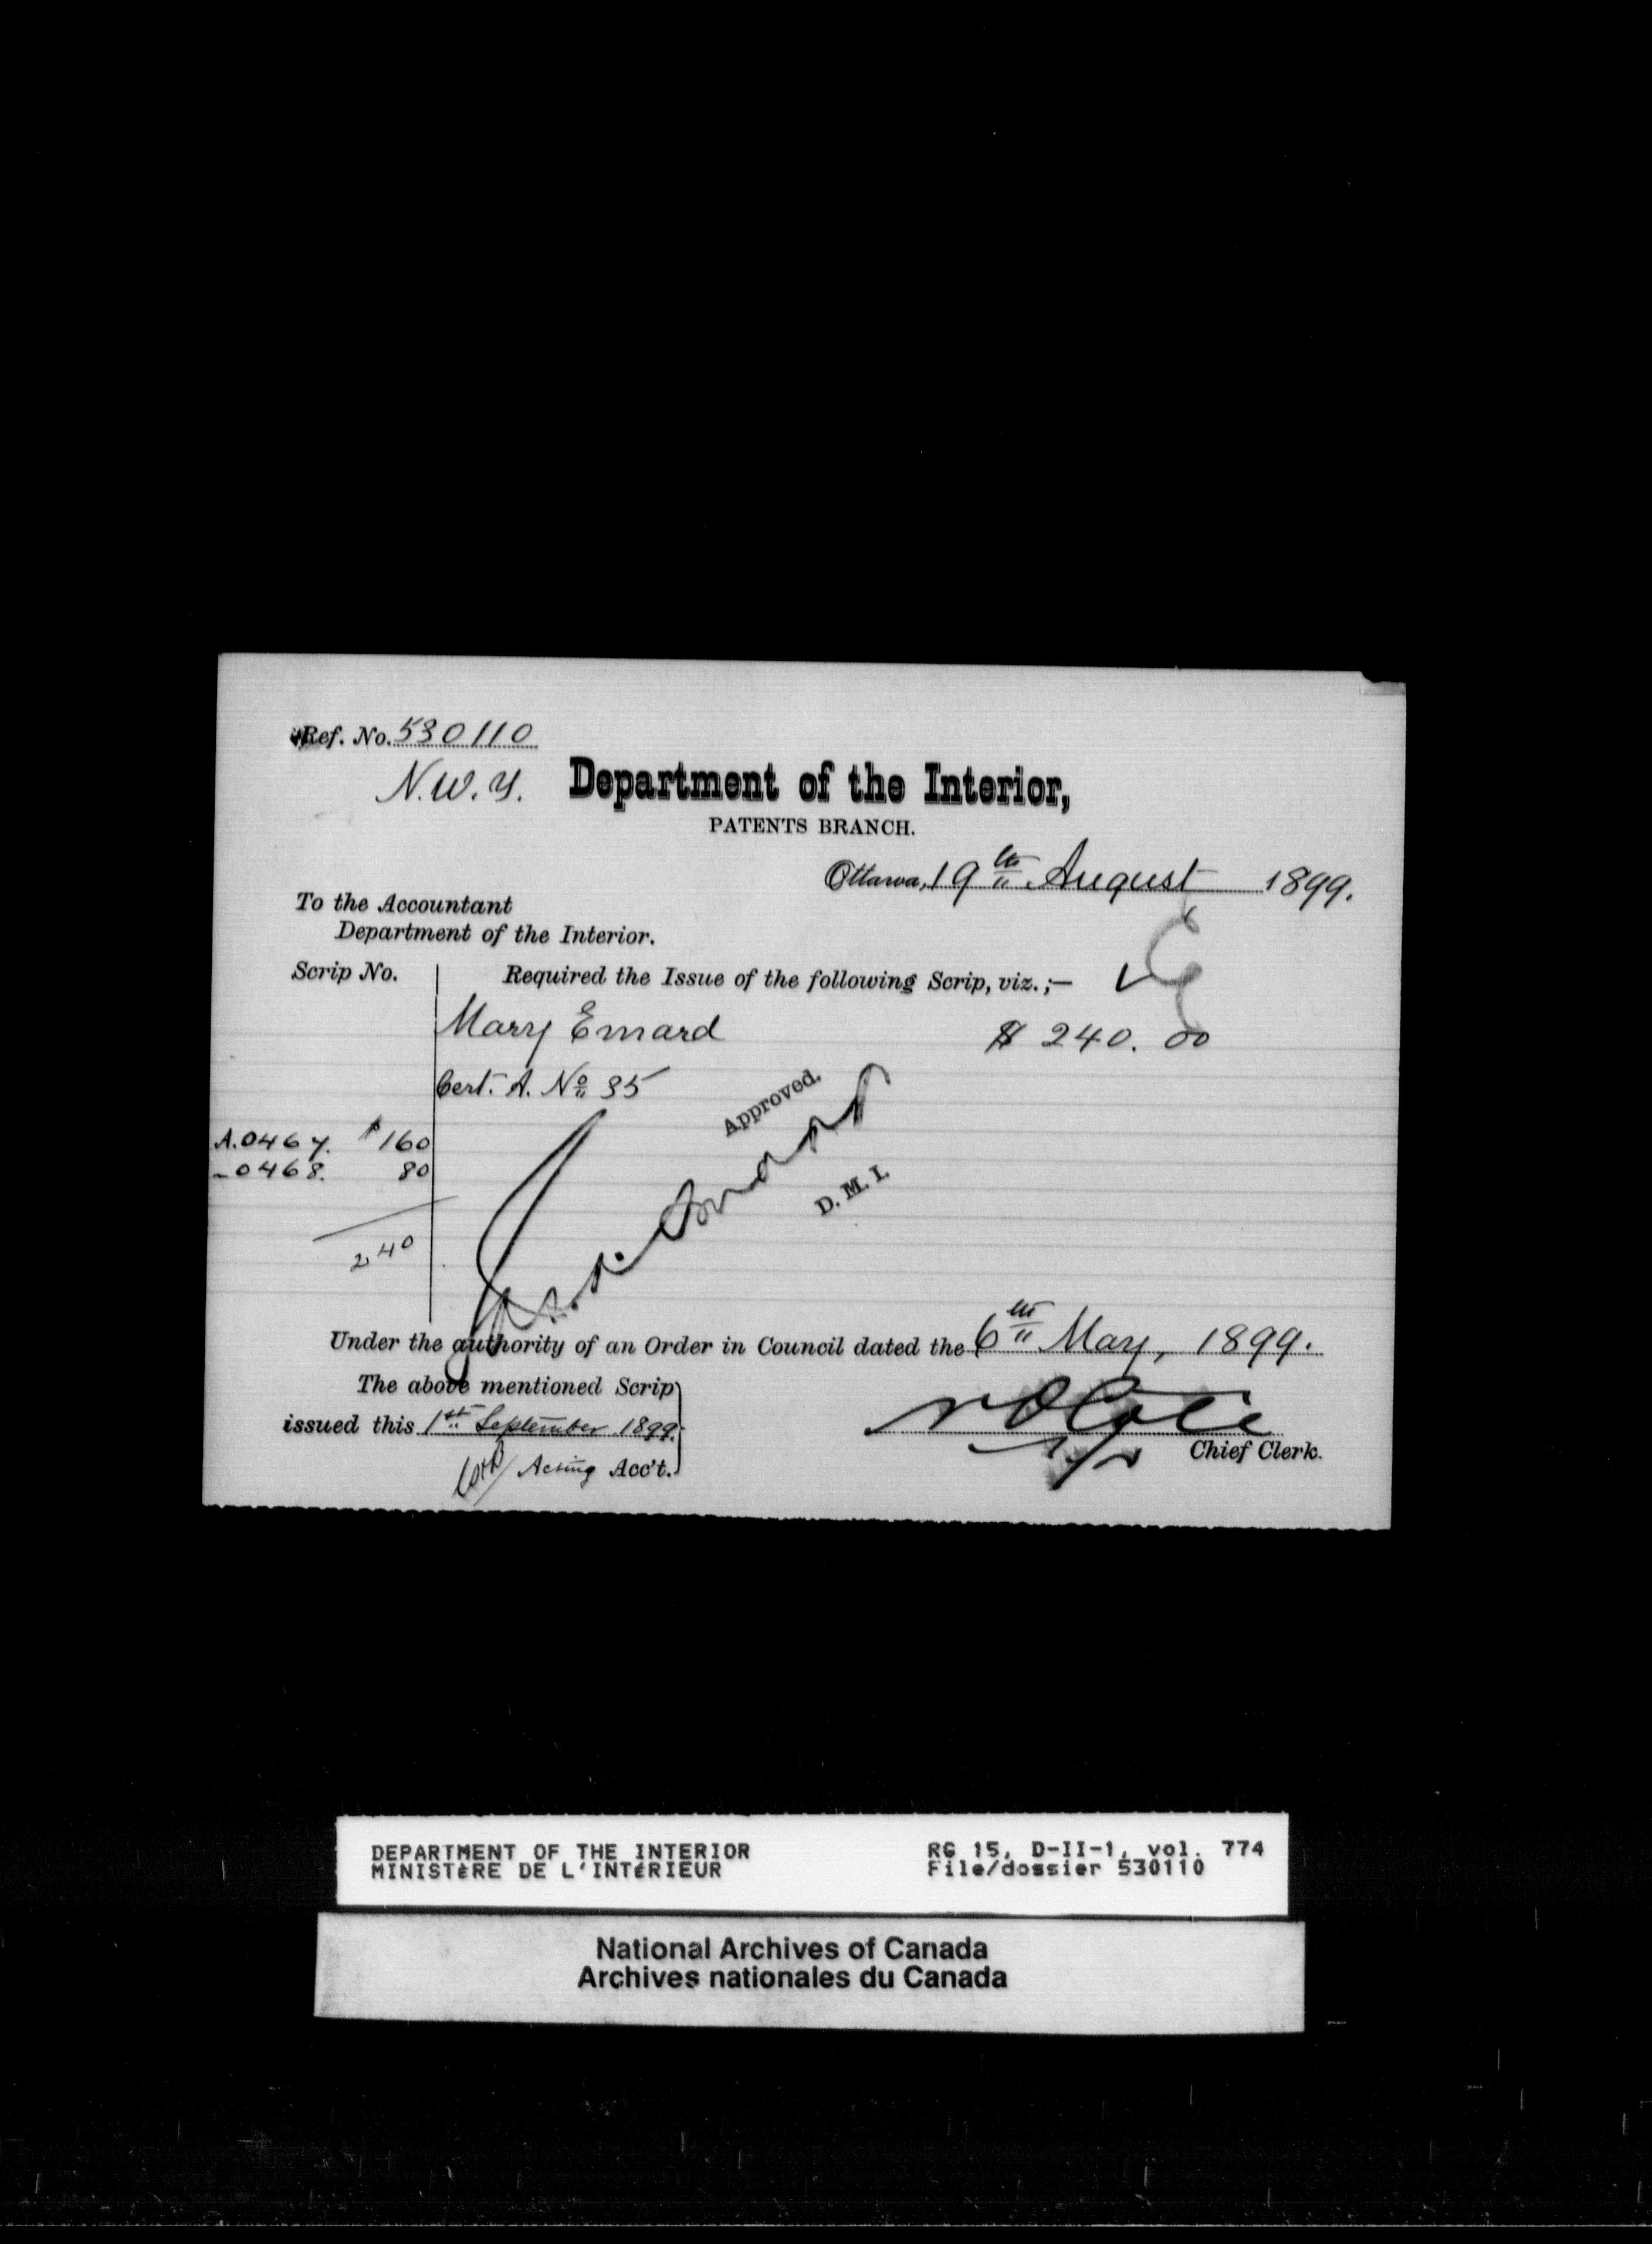 Ref. No. 530110
N.W.Y.
Department of the Interior,
PATENTS BRANCH.
Ottawa, 19th August 1899.
To the Accountant
Department of the Interior.
Scrip No.
Required the Issue of the following Scrip, viz.;—
Mary Emard $ 240.00
Cert. A. No 35
Approved.
A.0467. $160
-0468. 80
240
Jas. A. Smart
D. M. I.
Under the authority of an Order in Council dated the 6th May, 1899.
The above mentioned Scrip
issued this 1st September 1899.
Acting Acc't.
Chief Clerk.
DEPARTMENT OF THE INTERIOR
MINISTÈRE DE L'INTÉRIEUR
RG 15, D-II-1, vol. 774
File/dossier 530110
National Archives of Canada
Archives nationales du Canada